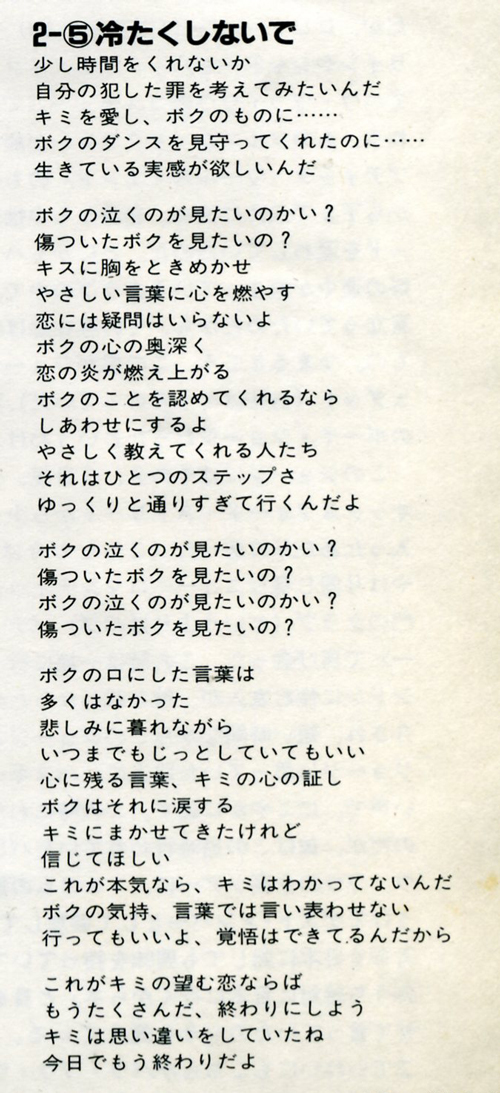 2-⑤冷たくしないで
少し時間をくれないか
自分の犯した罪を考えてみたいんだ
キミを愛し、ボクのものに……
ボクのダンスを見守ってくれたのに……
生きている実感が欲しいんだ
ボクの泣くのが見たいのかい?
傷ついたボクを見たいの?
キスに胸をときめかせ
やさしい言葉に心を燃やす
恋には疑問はいらないよ
ボクの心の奥深く
恋の炎が燃え上がる
ボクのことを認めてくれるなら
しあわせにするよ
やさしく教えてくれる人たち
それはひとつのステップさ
ゆっくりと通りすぎて行くんだよ
ボクの泣くのが見たいのかい?
傷ついたボクを見たいの?
ボクの泣くのが見たいのかい?
傷ついたボクを見たいの?
ボクの口にした言葉は
多くはなかった
悲しみに暮れながら
いつまでもじっとしていてもいい
心に残る言葉、キミの心の証し
ボクはそれに涙する
キミにまかせてきたけれど
信じてほしい
これが本気なら、キミはわかってないんだ
ボクの気持、言葉では言い表わせない
行ってもいいよ、覚悟はできてるんだから
これがキミの望む恋ならば
もうたくさんだ、終わりにしよう
キミは思い違いをしていたね
今日でもう終わりだよ